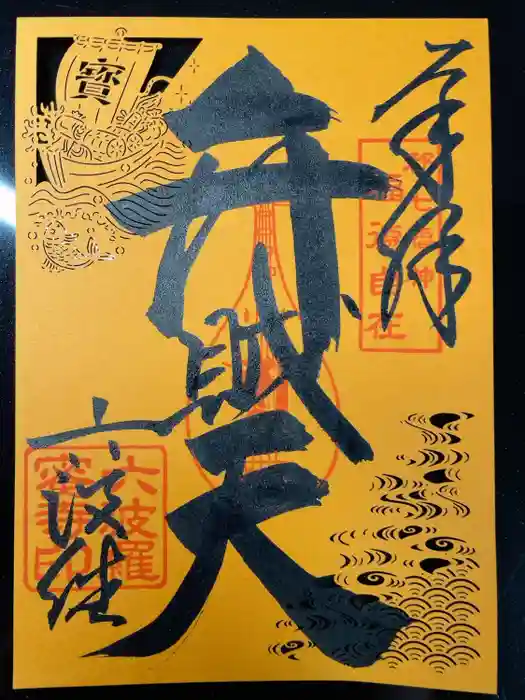 奉拝
都七福神
福徳自在
弁財天
寶
六波羅
六波羅
蜜寺印